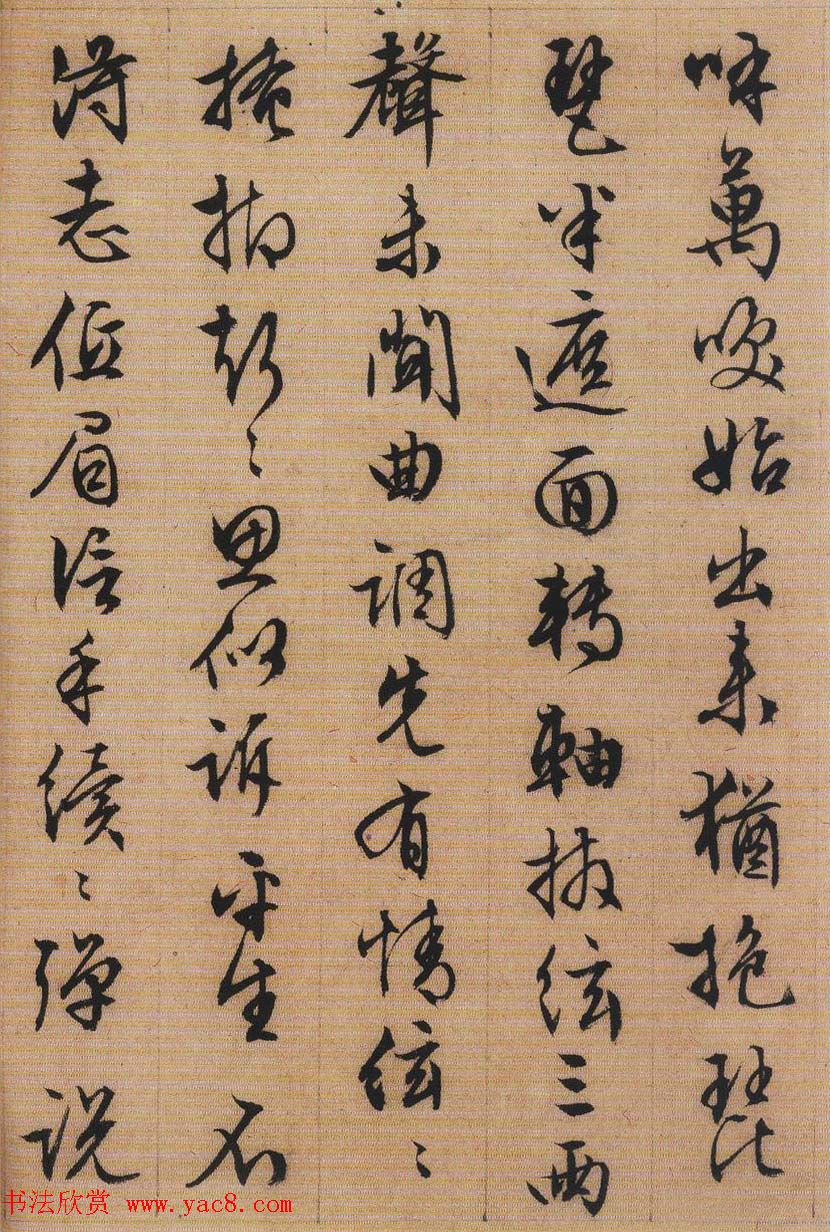 呼萬喚始出來猶抱琵
琶半遮面轉軸撥絃三兩
聲未聞曲調先有情絃〻
掩抑聲〻思似訴平生不
得志低眉信手續〻彈說
书法欣赏 www.yac8.com